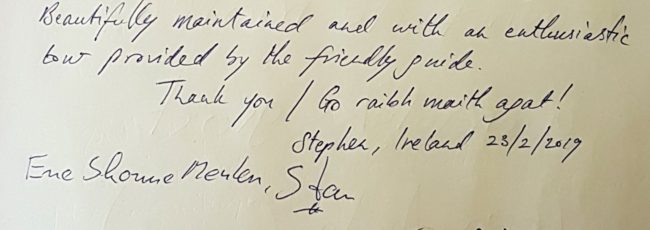 Beautifully maintained and with an enthusiastic
tour provided by the friendly guide.
Thank you / Go raibh maith agat!
Stephen, Ireland 23/2/2019
Ene Shonne Meulen, Stan